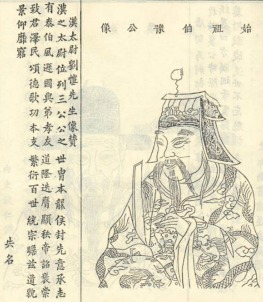 始祖伯豫公像
漢太尉劉愷先生像贊
漢之太尉位列三公公之世胄本龍侯封先意承志
有泰伯風遜國與第孝友道隆迭膺顯秩帝詔褒崇
致君澤民頌德歌功本支繁衍百世統宗瞻茲道貌
景仰靡窮
失名